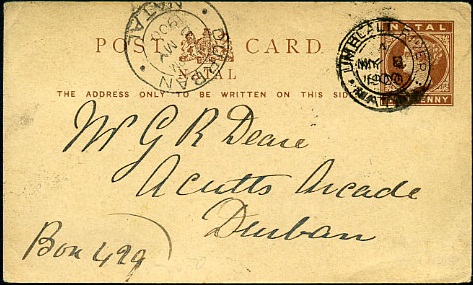 NATAL
POST CARD.
NATAL
THE ADDRESS ONLY TO BE WRITTEN ON THIS SIDE
DURBAN
NATAL
MY
1900
NATAL
PENNY
Mr G R Deare
Acutts Arcade
Durban
Box 429